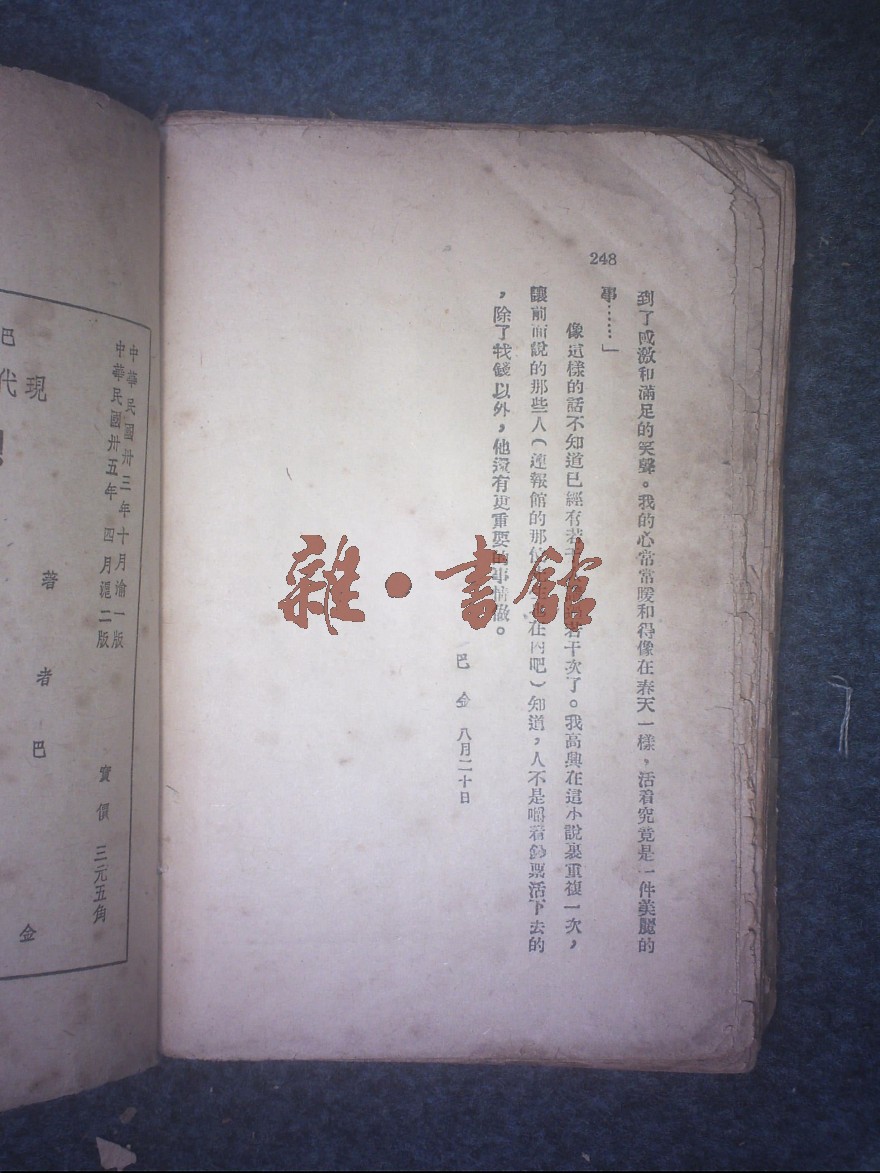 248
到了感激和滿足的笑聲。我的心常常暖和得像在春天一樣,活着究竟是一件美麗的
事……」
像這樣的話不知道已經有若干 若干次了。我高興在這小說裏重複一次,
讓前面說的那些人(連報館的那位 在內吧)知道,人不是嚼着鈔票活下去的
,除了找錢以外,他還有更重要的事情做。
巴金 八月二十日
雜·書館
中華民國卅三年十月渝一版
中華民國卅五年四月滬二版
實價 三元五角
著者巴金
現代
巴